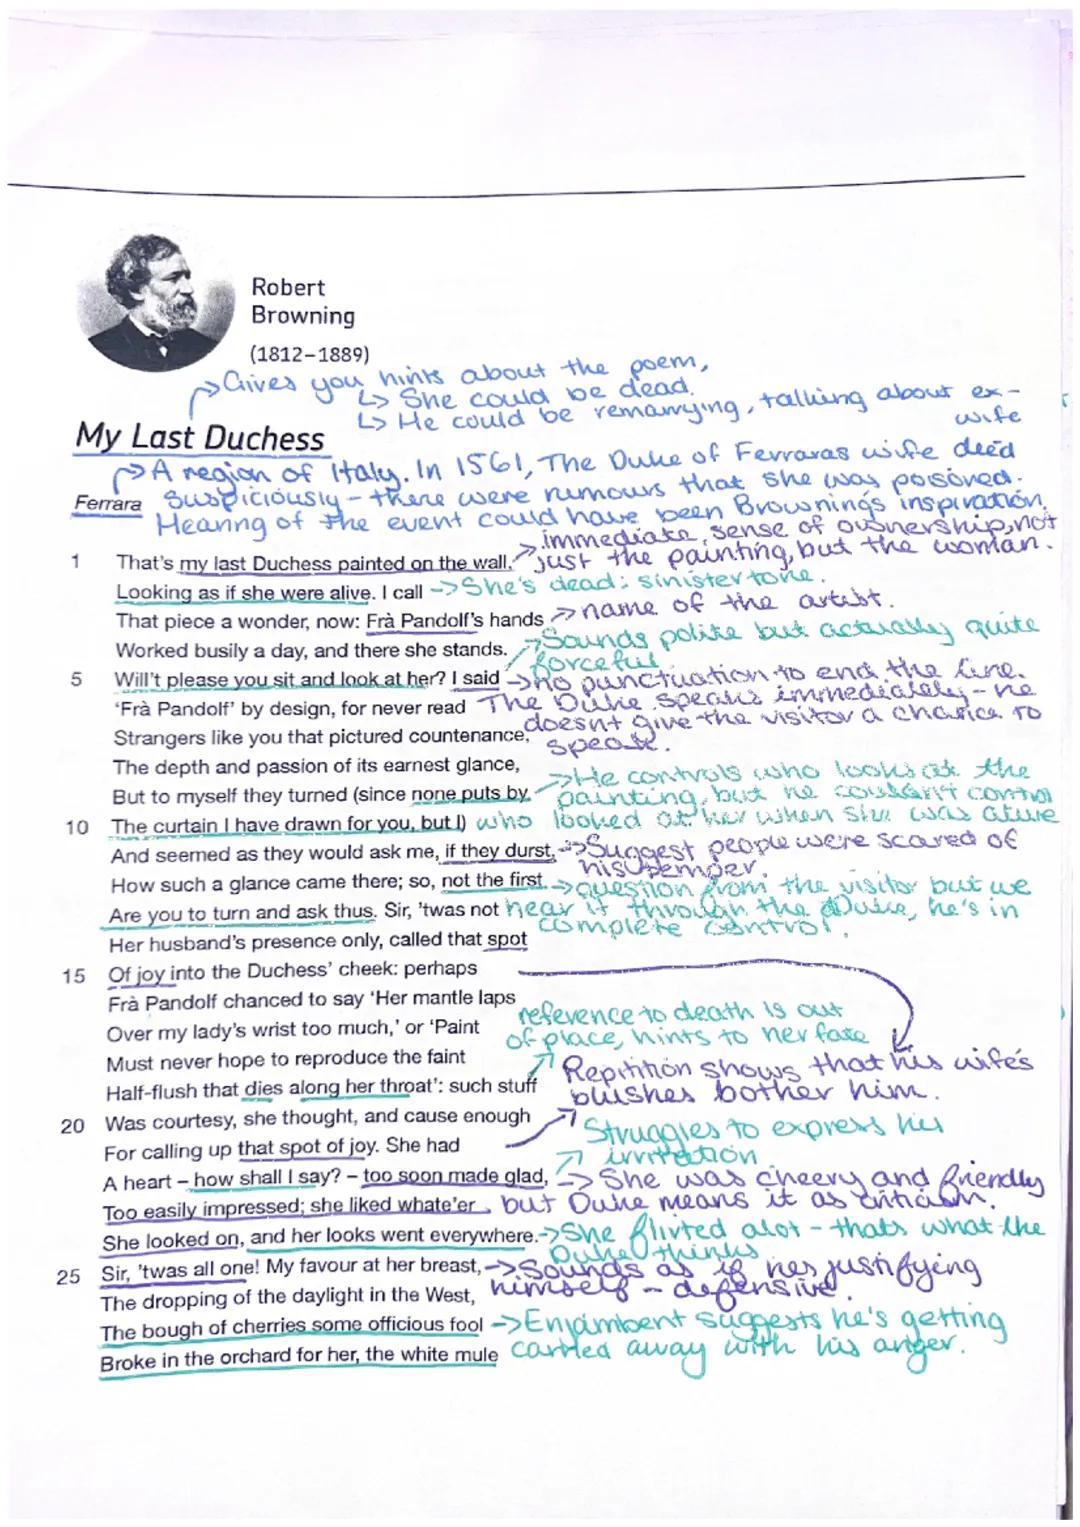 Robert
Browning
(1812–1889)
→Gives you hints about the poem,
↳ She could be dead.
↳ He could be remarrying, talking about ex-
wife
My Last Duchess
→A region of Italy. In 1561, The Duke of Ferraras wife died
Ferrara suspiciously - there were rumours that she was poisoned.
Hearing of the event could have been Browning's inspiration.
→immediate, sense of ownership, not
1 That's my last Duchess painted on the wall, just the painting, but the woman.
Looking as if she were alive. I call →She's dead: sinister tone.
That piece a wonder, now: Frà Pandolf's hands →name of the artist.
Worked busily a day, and there she stands. →Sounds polite but actually quite
forceful
5 Will't please you sit and look at her? I said →no punctuation to end the line.
'Frà Pandolf' by design, for never read The Duke speaks immediately - he
doesnt give the visitor a chance to
Strangers like you that pictured countenance, speak.
The depth and passion of its earnest glance, →He controls who looks at the
But to myself they turned (since none puts by painting, but he couldn't control
10 The curtain I have drawn for you, but I) who looked at her when she was alive
And seemed as they would ask me, if they durst, →Suggest people were scared of
his temper.
How such a glance came there; so, not the first →question from the visitor but we
Are you to turn and ask thus. Sir, 'twas not hear it through the Duke, he's in
complete control.
Her husband's presence only, called that spot
15 Of joy into the Duchess' cheek: perhaps
Frà Pandolf chanced to say 'Her mantle laps
reference to death is out
Over my lady's wrist too much,' or 'Paint of place, hints to her fate
Must never hope to reproduce the faint
Repitition shows that his wife's
Half-flush that dies along her throat': such stuff blushes bother him.
20 Was courtesy, she thought, and cause enough
Struggles to express his
For calling up that spot of joy. She had irritation
A heart – how shall I say? – too soon made glad, →She was cheery and friendly
Too easily impressed; she liked whate'er but Duke means it as criticism.
She looked on, and her looks went everywhere. →She flirted alot - thats what the
Duke thinks
25 Sir, 'twas all one! My favour at her breast, →Sounds as if hes justifying
The dropping of the daylight in the West, himself - defensive.
The bough of cherries some officious fool →Enjambent suggests he's getting
Broke in the orchard for her, the white mule carried away with his anger.